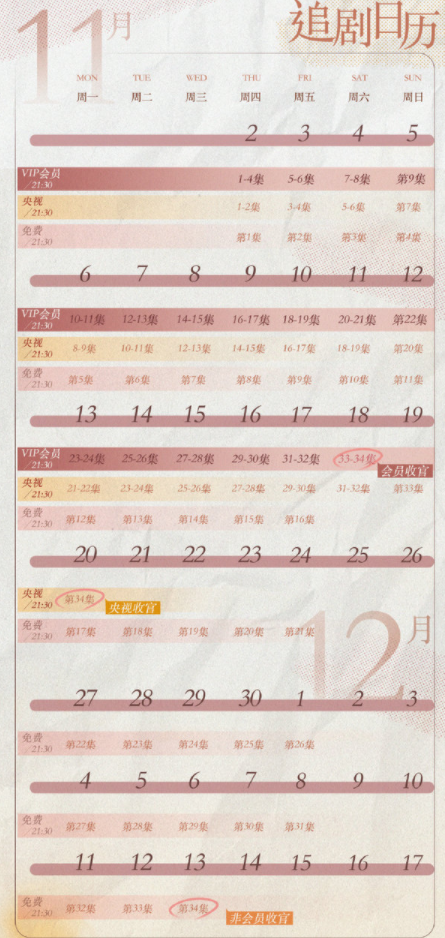 11月
追剧日历
MON TUE WED THU FRI SAT SUN
周一 周二 周三 周四 周五 周六 周日
2 3 4 5
VIP会员/21:30 1-4集 5-6集 7-8集 第9集
央视/21:30 1-2集 3-4集 5-6集 第7集
免费/21:30 第1集 第2集 第3集 第4集
6 7 8 9 10 11 12
VIP会员/21:30 10-11集 12-13集 14-15集 16-17集 18-19集 20-21集 第22集
央视/21:30 8-9集 10-11集 12-13集 14-15集 16-17集 18-19集 第20集
免费/21:30 第5集 第6集 第7集 第8集 第9集 第10集 第11集
13 14 15 16 17 18 19
VIP会员/21:30 23-24集 25-26集 27-28集 29-30集 31-32集 33-34集
会员收官
央视/21:30 21-22集 23-24集 25-26集 27-28集 29-30集 31-32集 第33集
免费/21:30 第12集 第13集 第14集 第15集 第16集
20 21 22 23 24 25 26
央视/21:30 第34集 央视收官
免费/21:30 第17集 第18集 第19集 第20集 第21集
12月
27 28 29 30 1 2 3
免费/21:30 第22集 第23集 第24集 第25集 第26集
4 5 6 7 8 9 10
免费/21:30 第27集 第28集 第29集 第30集 第31集
11 12 13 14 15 16 17
免费/21:30 第32集 第33集 第34集 非会员收官